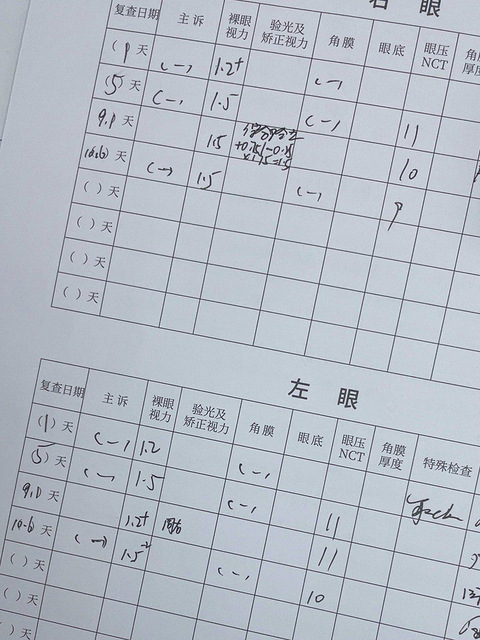 右 眼
复查日期 主 诉 裸眼视力 验光及矫正视力 角膜 眼底 眼压NCT 角膜厚度
(1)天 (-) 1.2+ (-)
(5)天 (-) 1.5 (-) 11
9.1 天 1.5 10
10.6 天 (-) 1.5 (-) 9
( )天
( )天
( )天
( )天
左 眼
复查日期 主 诉 裸眼视力 验光及矫正视力 角膜 眼底 眼压NCT 角膜厚度 特殊检查
(1)天 (-) 1.2 (-)
(5)天 (-) 1.5 (-) 11
9.1 天 1.2+ 11
10.6 天 (-) 1.5 (-) 10
( )天
( )天
( )天